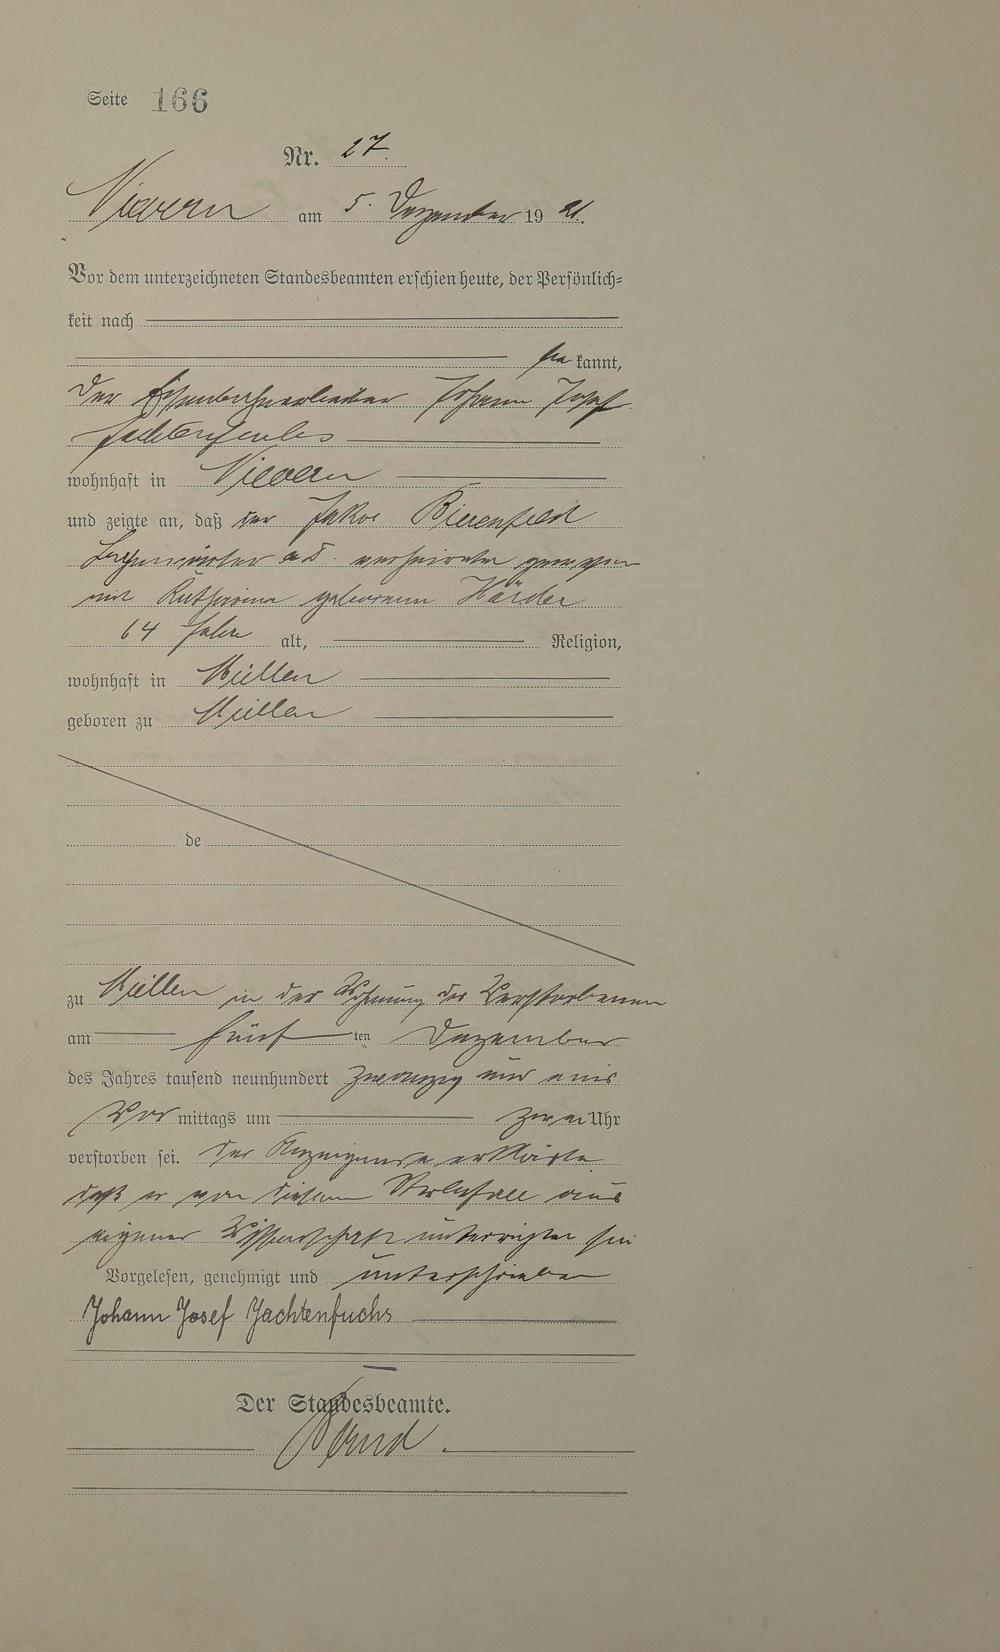 Seite 166
Nr. 27.
Nievern am 5. Dezember 19 21.
Vor dem unterzeichneten Standesbeamten erschien heute, der Persönlich-
keit nach
be kannt,
der Eisenbahnarbeiter Johann Josef
Jachtenfuchs
wohnhaft in Nievern
und zeigte an, daß der Jakob Bierenfeld
a. D. verheiratet gewesen
mit Katharina geborenen Härder
64 Jahre alt, Religion,
wohnhaft in Miellen
geboren zu Miellen
de
zu Miellen in der Wohnung des Verstorbenen
am fünf ten Dezember
des Jahres tausend neunhundert zwanzig und eins
Vor mittags um zwei Uhr
verstorben sei. Der Anzeigende erklärte
daß er von diesem Sterbefall aus
eigener Wissenschaft unterrichtet sei
Vorgelesen, genehmigt und unterschrieben
Johann Josef Jachtenfuchs
Der Standesbeamte.